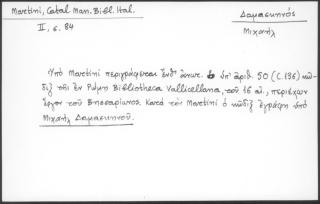 Martini, Catal. Man. Bibl. Ital.
II, σ. 84
Δαμασκηνός
Μιχαήλ
Ὑπὸ Martini περιγράφεται ὑπ' ἀριθ. 50 (C.136) κῶ-
διξ τῆς ἐν Ῥώμῃ Bibliotheca Vallicellana, τοῦ 16 αἰ., περιέχων
ἔργον τοῦ Βησσαρίωνος. Κατὰ τὸν Martini ὁ κῶδιξ ἐγράφη ὑπὸ
Μιχαήλ Δαμασκηνοῦ.